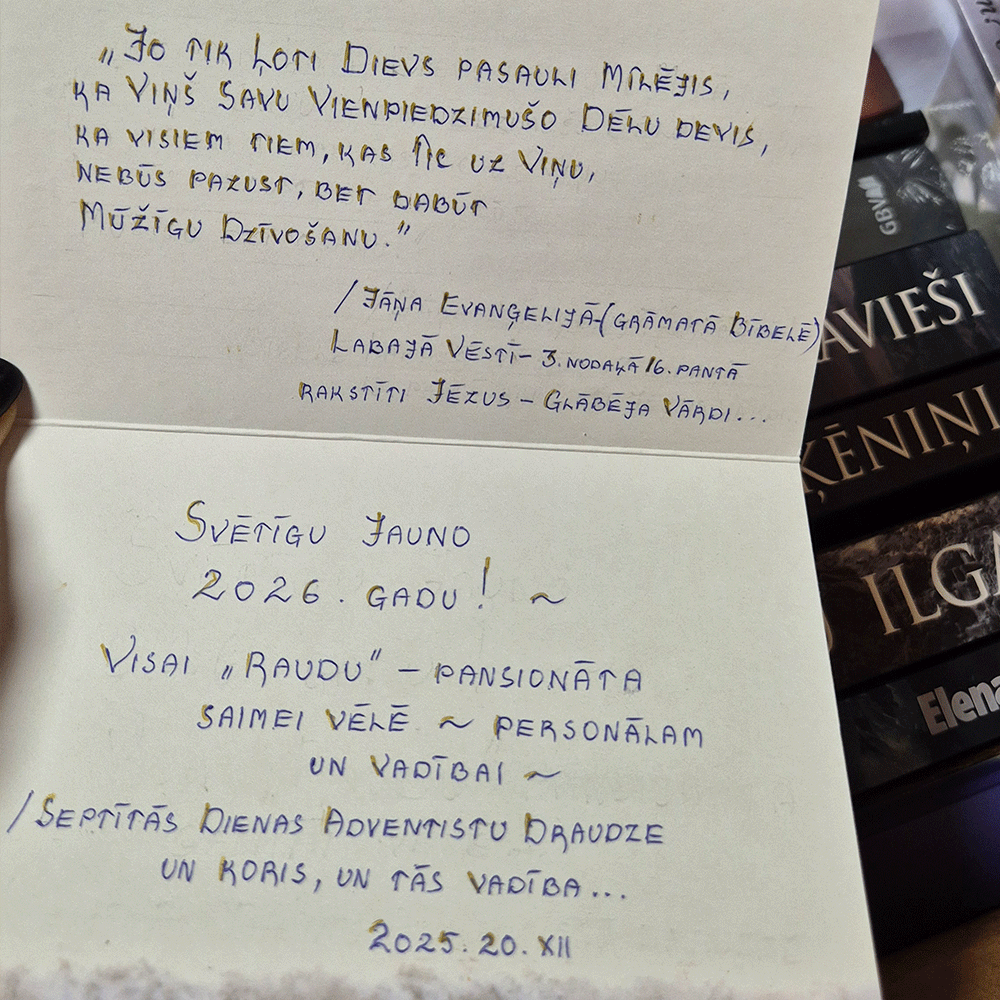 „Jo tik ļoti Dievs pasauli mīlējis,
ka Viņš Savu Vienpiedzimušo Dēlu devis,
ka visiem tiem, kas tic uz Viņu,
nebūs pazust, bet dabūt
Mūžīgu Dzīvošanu.”
/Jāņa Evaņģelijā-(grāmatā Bībelē)
Labajā Vēstī- 3. nodaļā 16. pantā
rakstīti Jēzus – Glābēja Vārdi...
Svētīgu Jauno
2026. gadu! ~
Visai „Raudu” – pansionāta
saimei vēlē ~ personālam
un vadībai ~
/Septītās Dienas Adventistu Draudze
un koris, un tās vadība...
2025. 20. XII
GBVM
AVIEŠI
ĶĒNIŅI
ILGA
Elena